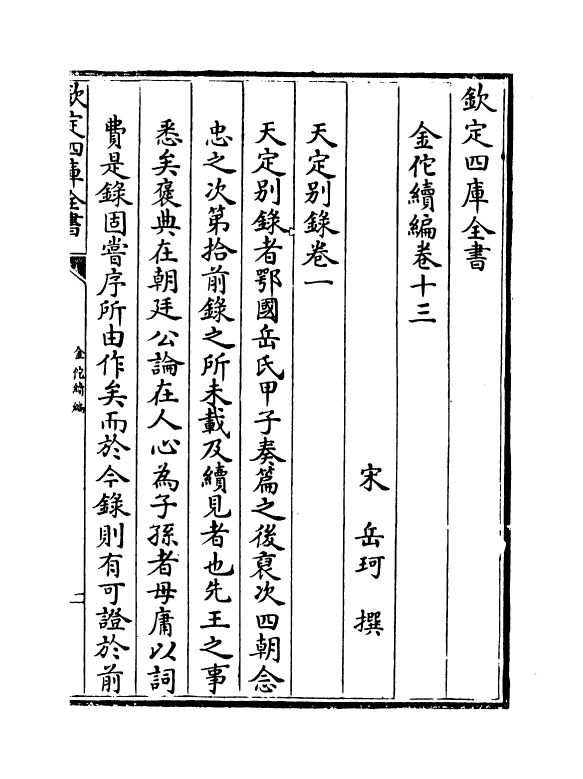 欽定四庫全書
金佗續編卷十三
宋 岳珂 撰
天定别錄卷一
天定别錄者鄂國岳氏甲子奏篇之後裒次四朝念
忠之次第拾前錄之所未載及續見者也先王之事
悉矣褒典在朝廷公論在人心為子孫者毋庸以詞
費是錄固嘗序所由作矣而於今錄則有可證於前
欽定四庫全書
金佗續編
二